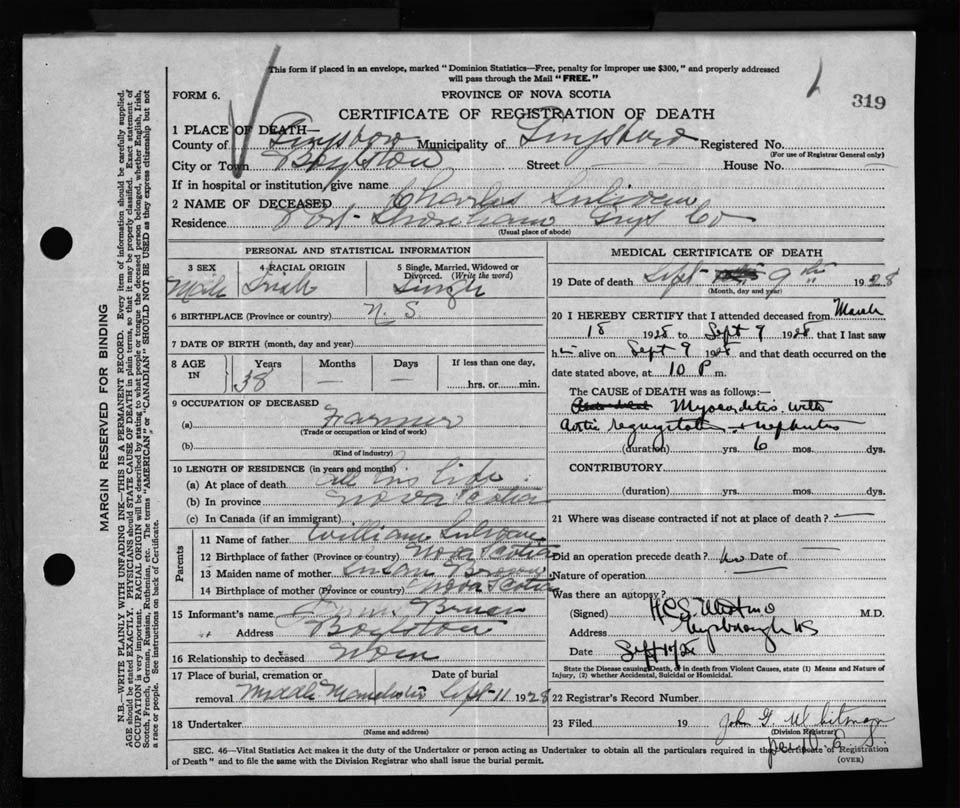 This form if placed in an envelope, marked "Dominion Statistics—Free, penalty for improper use $300," and properly addressed
will pass through the Mail "FREE."
FORM 6.
PROVINCE OF NOVA SCOTIA
319
CERTIFICATE OF REGISTRATION OF DEATH
1 PLACE OF DEATH—
County of Guysboro Municipality of Guysboro Registered No.
(For use of Registrar General only)
City or Town Boylston Street — House No. —
If in hospital or institution, give name
2 NAME OF DECEASED Charles Sulivan
Residence Port Shoreham Guys Co
(Usual place of abode)
PERSONAL AND STATISTICAL INFORMATION
3 SEX
4 RACIAL ORIGIN
5 Single, Married, Widowed or Divorced. (Write the word)
Male Irish Single
6 BIRTHPLACE (Province or country) N. S.
7 DATE OF BIRTH (month, day and year)
8 AGE IN
Years Months Days If less than one day,
38 — — hrs. or min.
9 OCCUPATION OF DECEASED
(a) Farmer
(Trade or occupation or kind of work)
(b)
(Kind of industry)
10 LENGTH OF RESIDENCE (in years and months)
(a) At place of death all his life
(b) In province Nova Scotia
(c) In Canada (if an immigrant)
Parents
11 Name of father William Sulivan
12 Birthplace of father (Province or country) Nova Scotia
13 Maiden name of mother Susan
14 Birthplace of mother (Province or country) Nova Scotia
15 Informant's name
" Address Boylston
16 Relationship to deceased
17 Place of burial, cremation or removal Middle Manchester
Date of burial Sept 11 1928
18 Undertaker
(Name and address)
MEDICAL CERTIFICATE OF DEATH
19 Date of death Sept 9th 1928
(Month, day and year)
20 I HEREBY CERTIFY that I attended deceased from March
18 1928 to Sept 9 1928 that I last saw
him alive on Sept 9 1928 and that death occurred on the
date stated above, at 10 P m.
The CAUSE OF DEATH was as follows:
Myocarditis with
aortic regurgitation + nephritis
(duration) yrs. 6 mos. dys.
CONTRIBUTORY
(duration) yrs. mos. dys.
21 Where was disease contracted if not at place of death? —
Did an operation precede death? no Date of —
Nature of operation
Was there an autopsy?
(Signed) M.D.
Address Guysborough NS
Date
State the Disease causing Death, or in death from Violent Causes, state (1) Means and Nature of
Injury, (2) whether Accidental, Suicidal or Homicidal.
22 Registrar's Record Number
23 Filed 19 John G Whitman
(Division Registrar)
SEC. 46—Vital Statistics Act makes it the duty of the Undertaker or person acting as Undertaker to obtain all the particulars required in the Certificate of Registration
of Death" and to file the same with the Division Registrar who shall issue the burial permit.
(OVER)
MARGIN RESERVED FOR BINDING
N.B.—WRITE PLAINLY WITH UNFADING INK—THIS IS A PERMANENT RECORD. Every item of information should be carefully supplied.
AGE should be stated EXACTLY. PHYSICIANS should STATE CAUSE OF DEATH in plain terms, so that it may be properly classified. Exact statement of
OCCUPATION is very important. RACIAL ORIGIN will be described by stating to what people or tongue the deceased person belonged, whether English, Irish,
Scotch, French, German, Russian, Ruthenian, etc. The terms "AMERICAN" or "CANADIAN" SHOULD NOT BE USED as they express citizenship but not
a race or people. See instructions on back of Certificate.